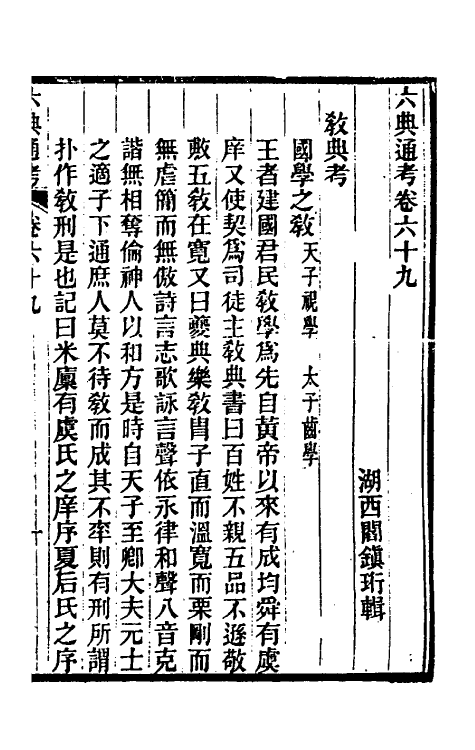 六典通考卷六十九
湖西閻鎮珩輯
敎典考
國學之敎 天子視學 太子齒學
王者建國君民敎學爲先自黃帝以來有成均舜有虞
庠又使契爲司徒主敎典書曰百姓不親五品不遜敬
敷五敎在寬又曰夔典樂敎胄子直而溫寬而栗剛而
無虐簡而無傲詩言志歌詠言聲依永律和聲八音克
諧無相奪倫神人以和方是時自天子至鄉大夫元士
之適子下通庶人莫不待敎而成其不率則有刑所謂
扑作敎刑是也記曰米廩有虞氏之庠序夏后氏之序
六典通考 卷六十九 一